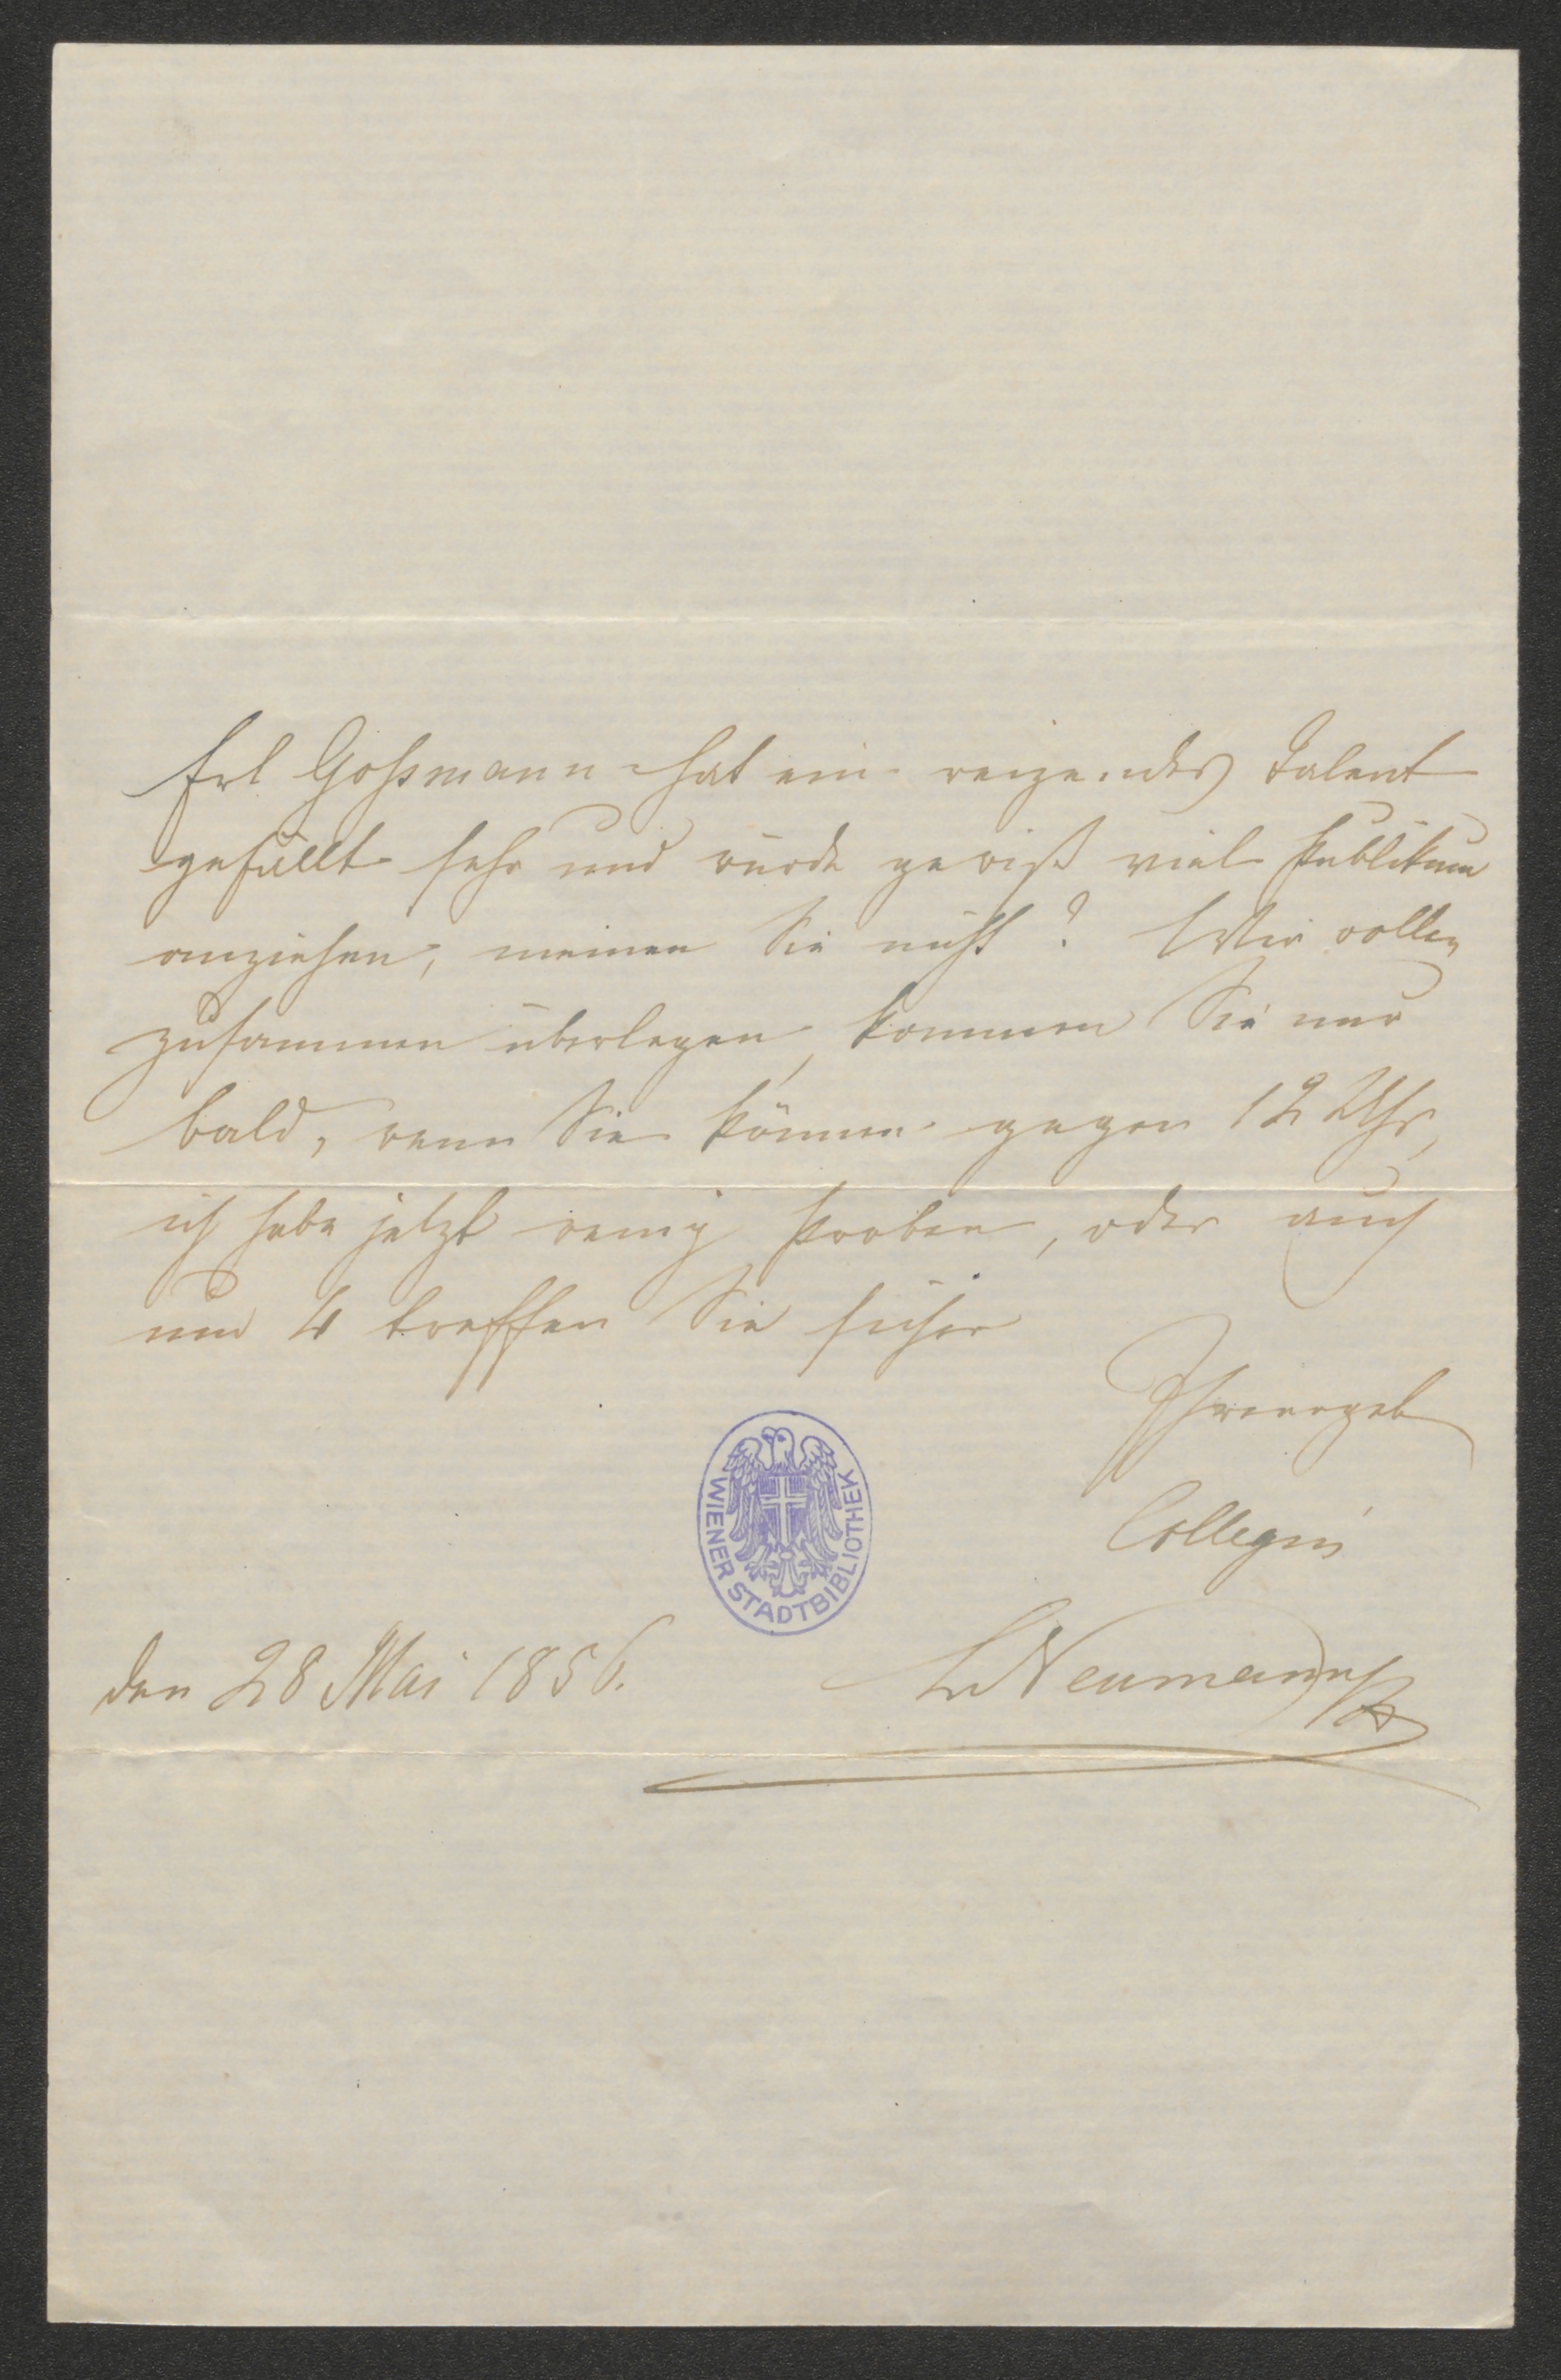 Frl Goßmann hat ein reizendes Talent
gefällt sehr und würde gewiß viel Publikum
anziehen, meinen Sie nicht? Wir wollen
zusammen überlegen, kommen Sie nur
bald, wenn Sie können gegen 12 Uhr,
ich habe jetzt wenig Proben, oder auch
um 4 treffen Sie sicher
Ihre ergeb
Collegin
WIENER STADTBIBLIOTHEK
den 28 Mai 1856.
LNeumann